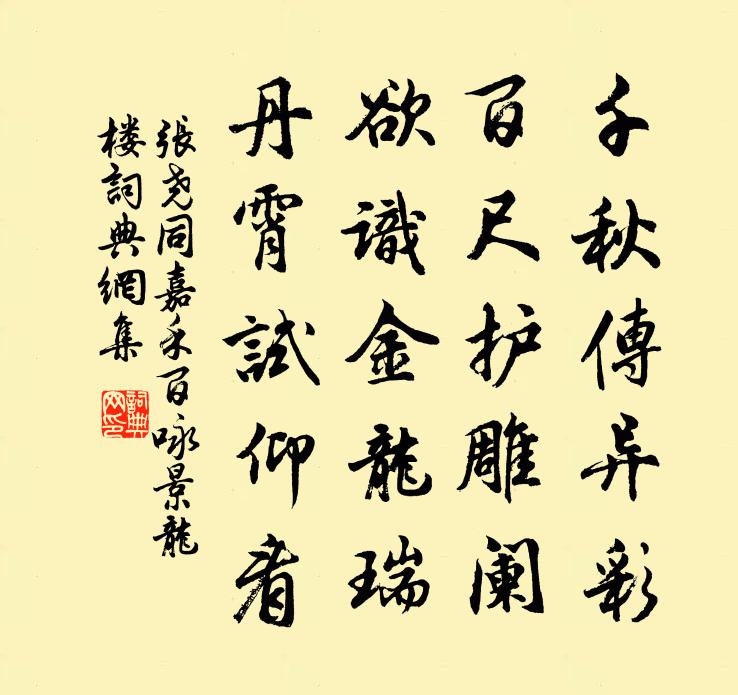 千秋傳异彩
百尺护雕阑
欲識金龍瑞
丹霄試仰看
張尧同嘉禾百咏景龍
楼詞典網集
詞典
网印